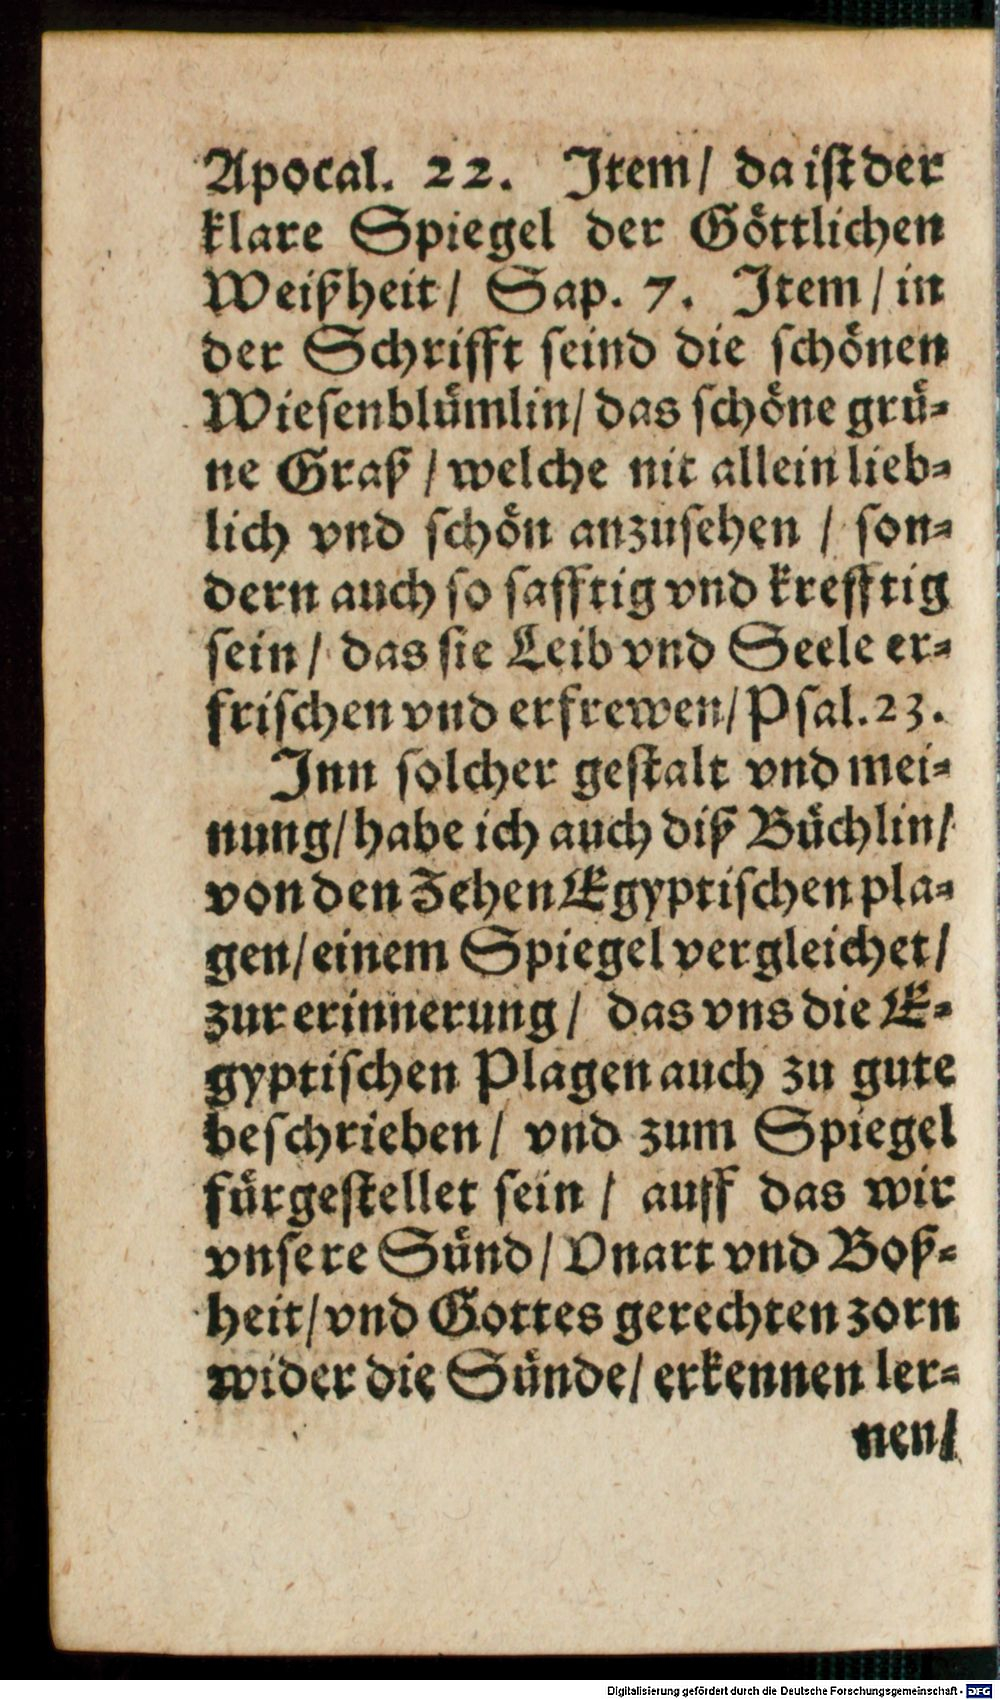 Apocal. 22. Item/ da ist der
klare Spiegel der Göttlichen
Weißheit/ Sap. 7. Item/ in
der Schrifft seind die schönen
Wiesenblümlin/ das schöne grü-
ne Graß / welche nit allein lieb-
lich vnd schön anzusehen / son-
dern auch so safftig vnd krefftig
sein/ das sie Leib vnd Seele er-
frischen vnd erfrewen/ Psal. 23.
Inn solcher gestalt vnd mei-
nung/ habe ich auch diß Büchlin/
von den Zehen Egyptischen pla-
gen/ einem Spiegel vergleichet/
zur erinnerung/ das vns die E-
gyptischen Plagen auch zu gute
beschrieben/ vnd zum Spiegel
fürgestellet sein / auff das wir
vnsere Sünd/ Vnart vnd Boß-
heit/ vnd Gottes gerechten zorn
wider die Sünde/ erkennen ler-
nen/
Digitalisierung gefördert durch die Deutsche Forschungsgemeinschaft - DFG